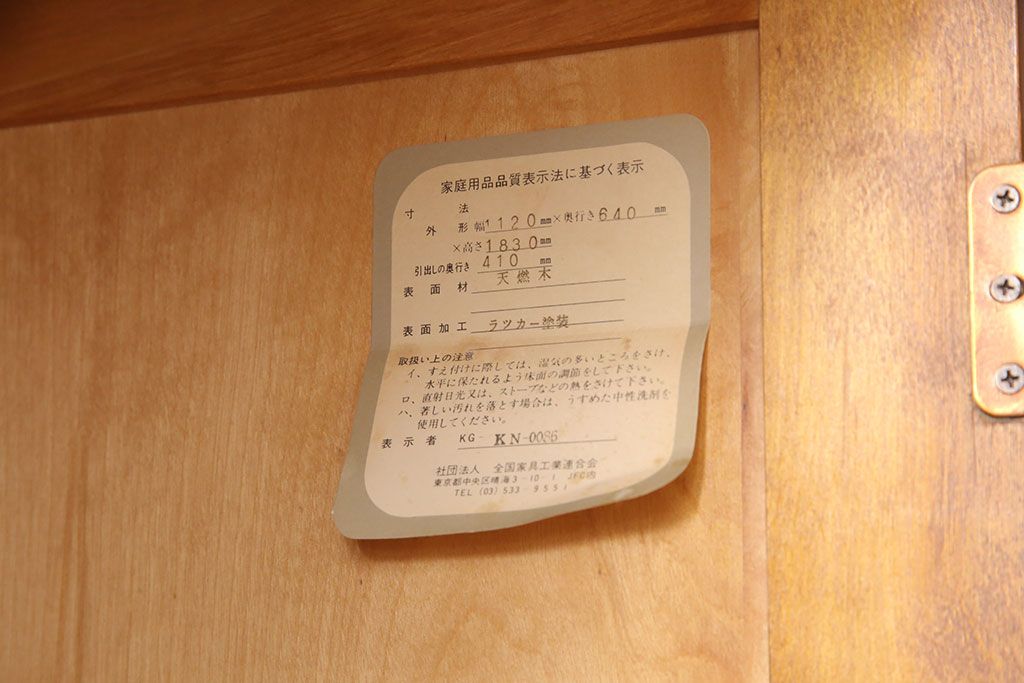 家庭用品品質表示法に基づく表示
寸法
外形 幅1120mm×奥行き640mm
×高さ1830mm
引出しの奥行き 410mm
表面材 天燃木
表面加工 ラツカー塗装
取扱い上の注意
イ、すえ付けに際しては、湿気の多いところをさけ、
水平に保たれるよう床面の調節をして下さい。
ロ、直射日光又は、ストーブなどの熱をさけて下さい。
ハ、著しい汚れを落とす場合は、うすめた中性洗剤を
使用してください。
表示者 KG- KN-0086
社団法人 全国家具工業連合会
東京都中央区晴海3-10-1 JFC内
TEL (03) 533-9551